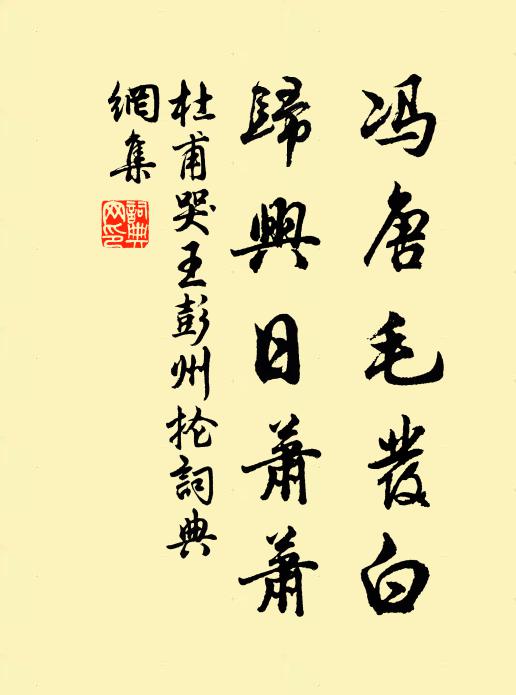 冯唐毛發白
歸興日蕭蕭
杜甫哭王彭州抡詞典
網集
詞典
网印